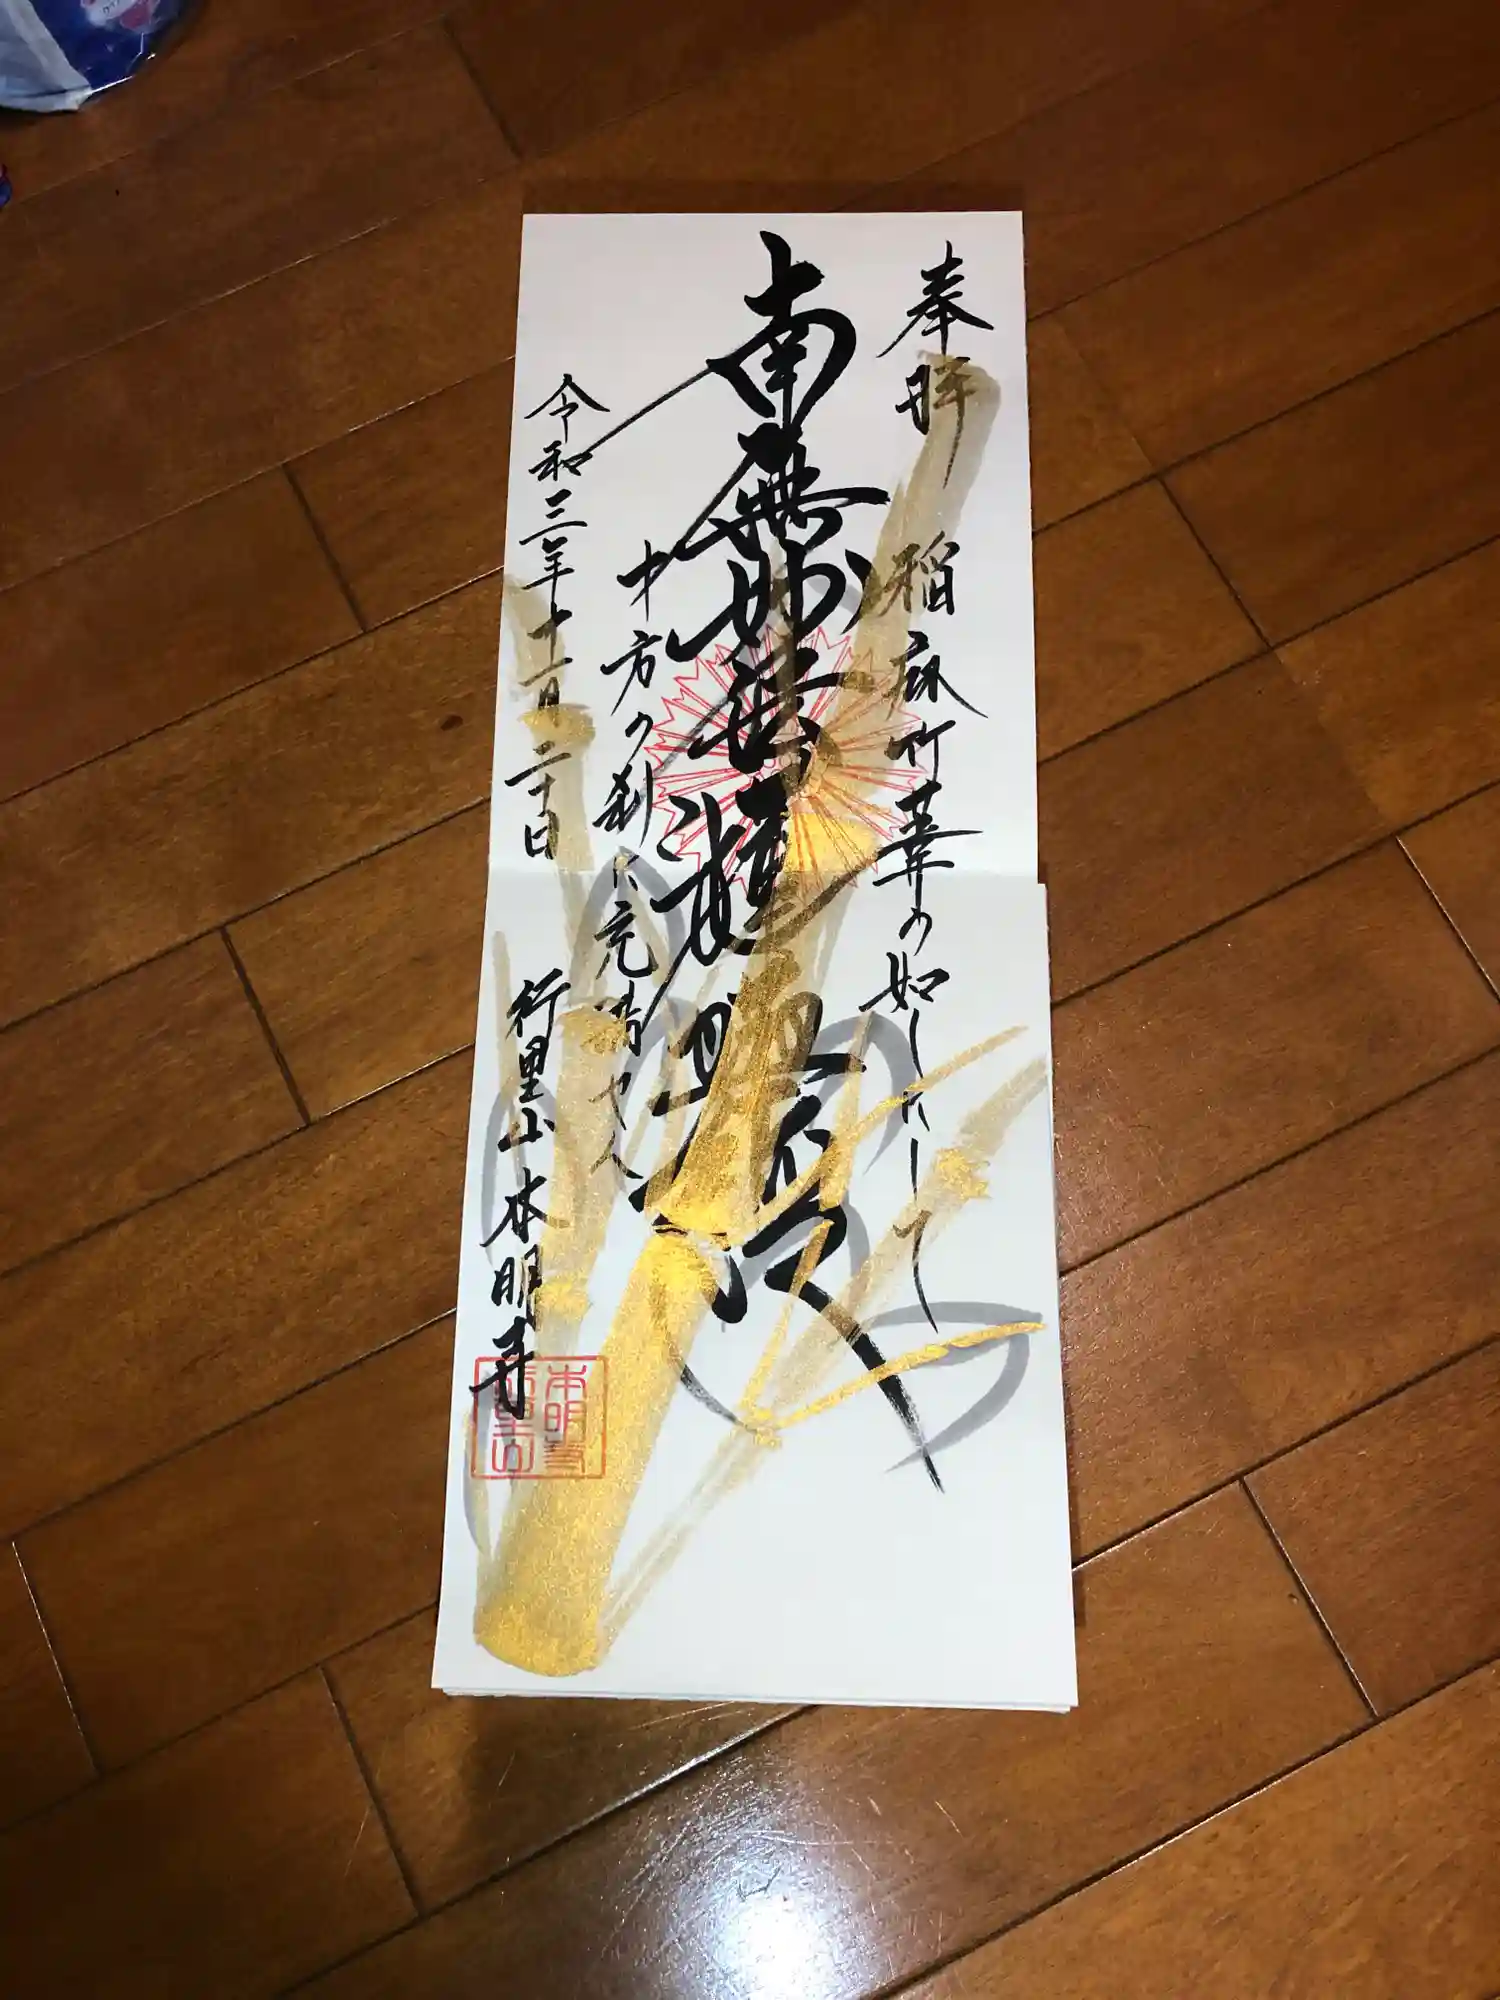 奉拝
稲麻竹葦の如くにして
南無妙法蓮華経
十方の刹に充満せん
令和三年十一月二十日
行里山 本明寺
本明寺